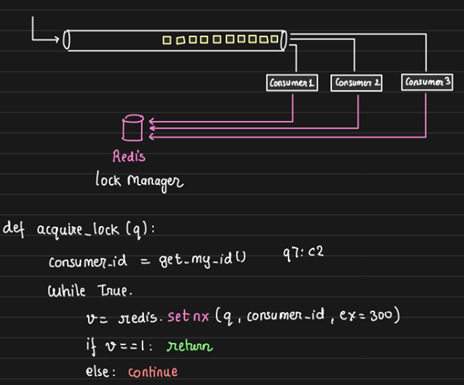 Consumer1 Consumer 2 Consumer 3
Redis
lock Manager
def acquire_lock (q):
consumer_id = get_my_id() q7: c2
while True.
v= redis. setnx (q, consumer_id, ex=300)
if v==1: return
else: continue